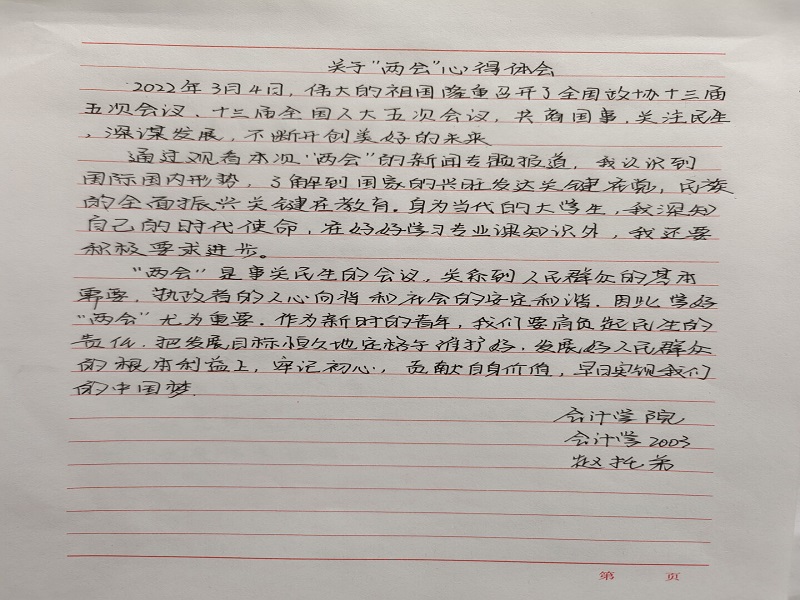 关于"两会"心得体会
2022年3月4日，伟大的祖国隆重召开了全国政协十三届
五次会议、十三届全国人大五次会议，共商国事，关注民生
，深谋发展，不断开创美好的未来
通过观看本次"两会"的新闻专题报道，我认识到
国际国内形势，了解到国家的兴旺发达关键在党，民族
的全面振兴关键在教育。身为当代的大学生，我深知
自己的时代使命，在好好学习专业课知识外，我还要
积极要求进步。
"两会"是事关民生的会议，关系到人民群众的基本
需要，执政者的人心向背和社会的安定和谐．因此学好
"两会"尤为重要．作为新时的青年，我们要肩负起民生的
责任．把发展目标恒久地定格于维护好．发展好人民群众
的根本利益上，牢记初心，贡献自身价值，早日实现我们
的中国梦．
会计学院
会计学2003
赵托弟
第 页